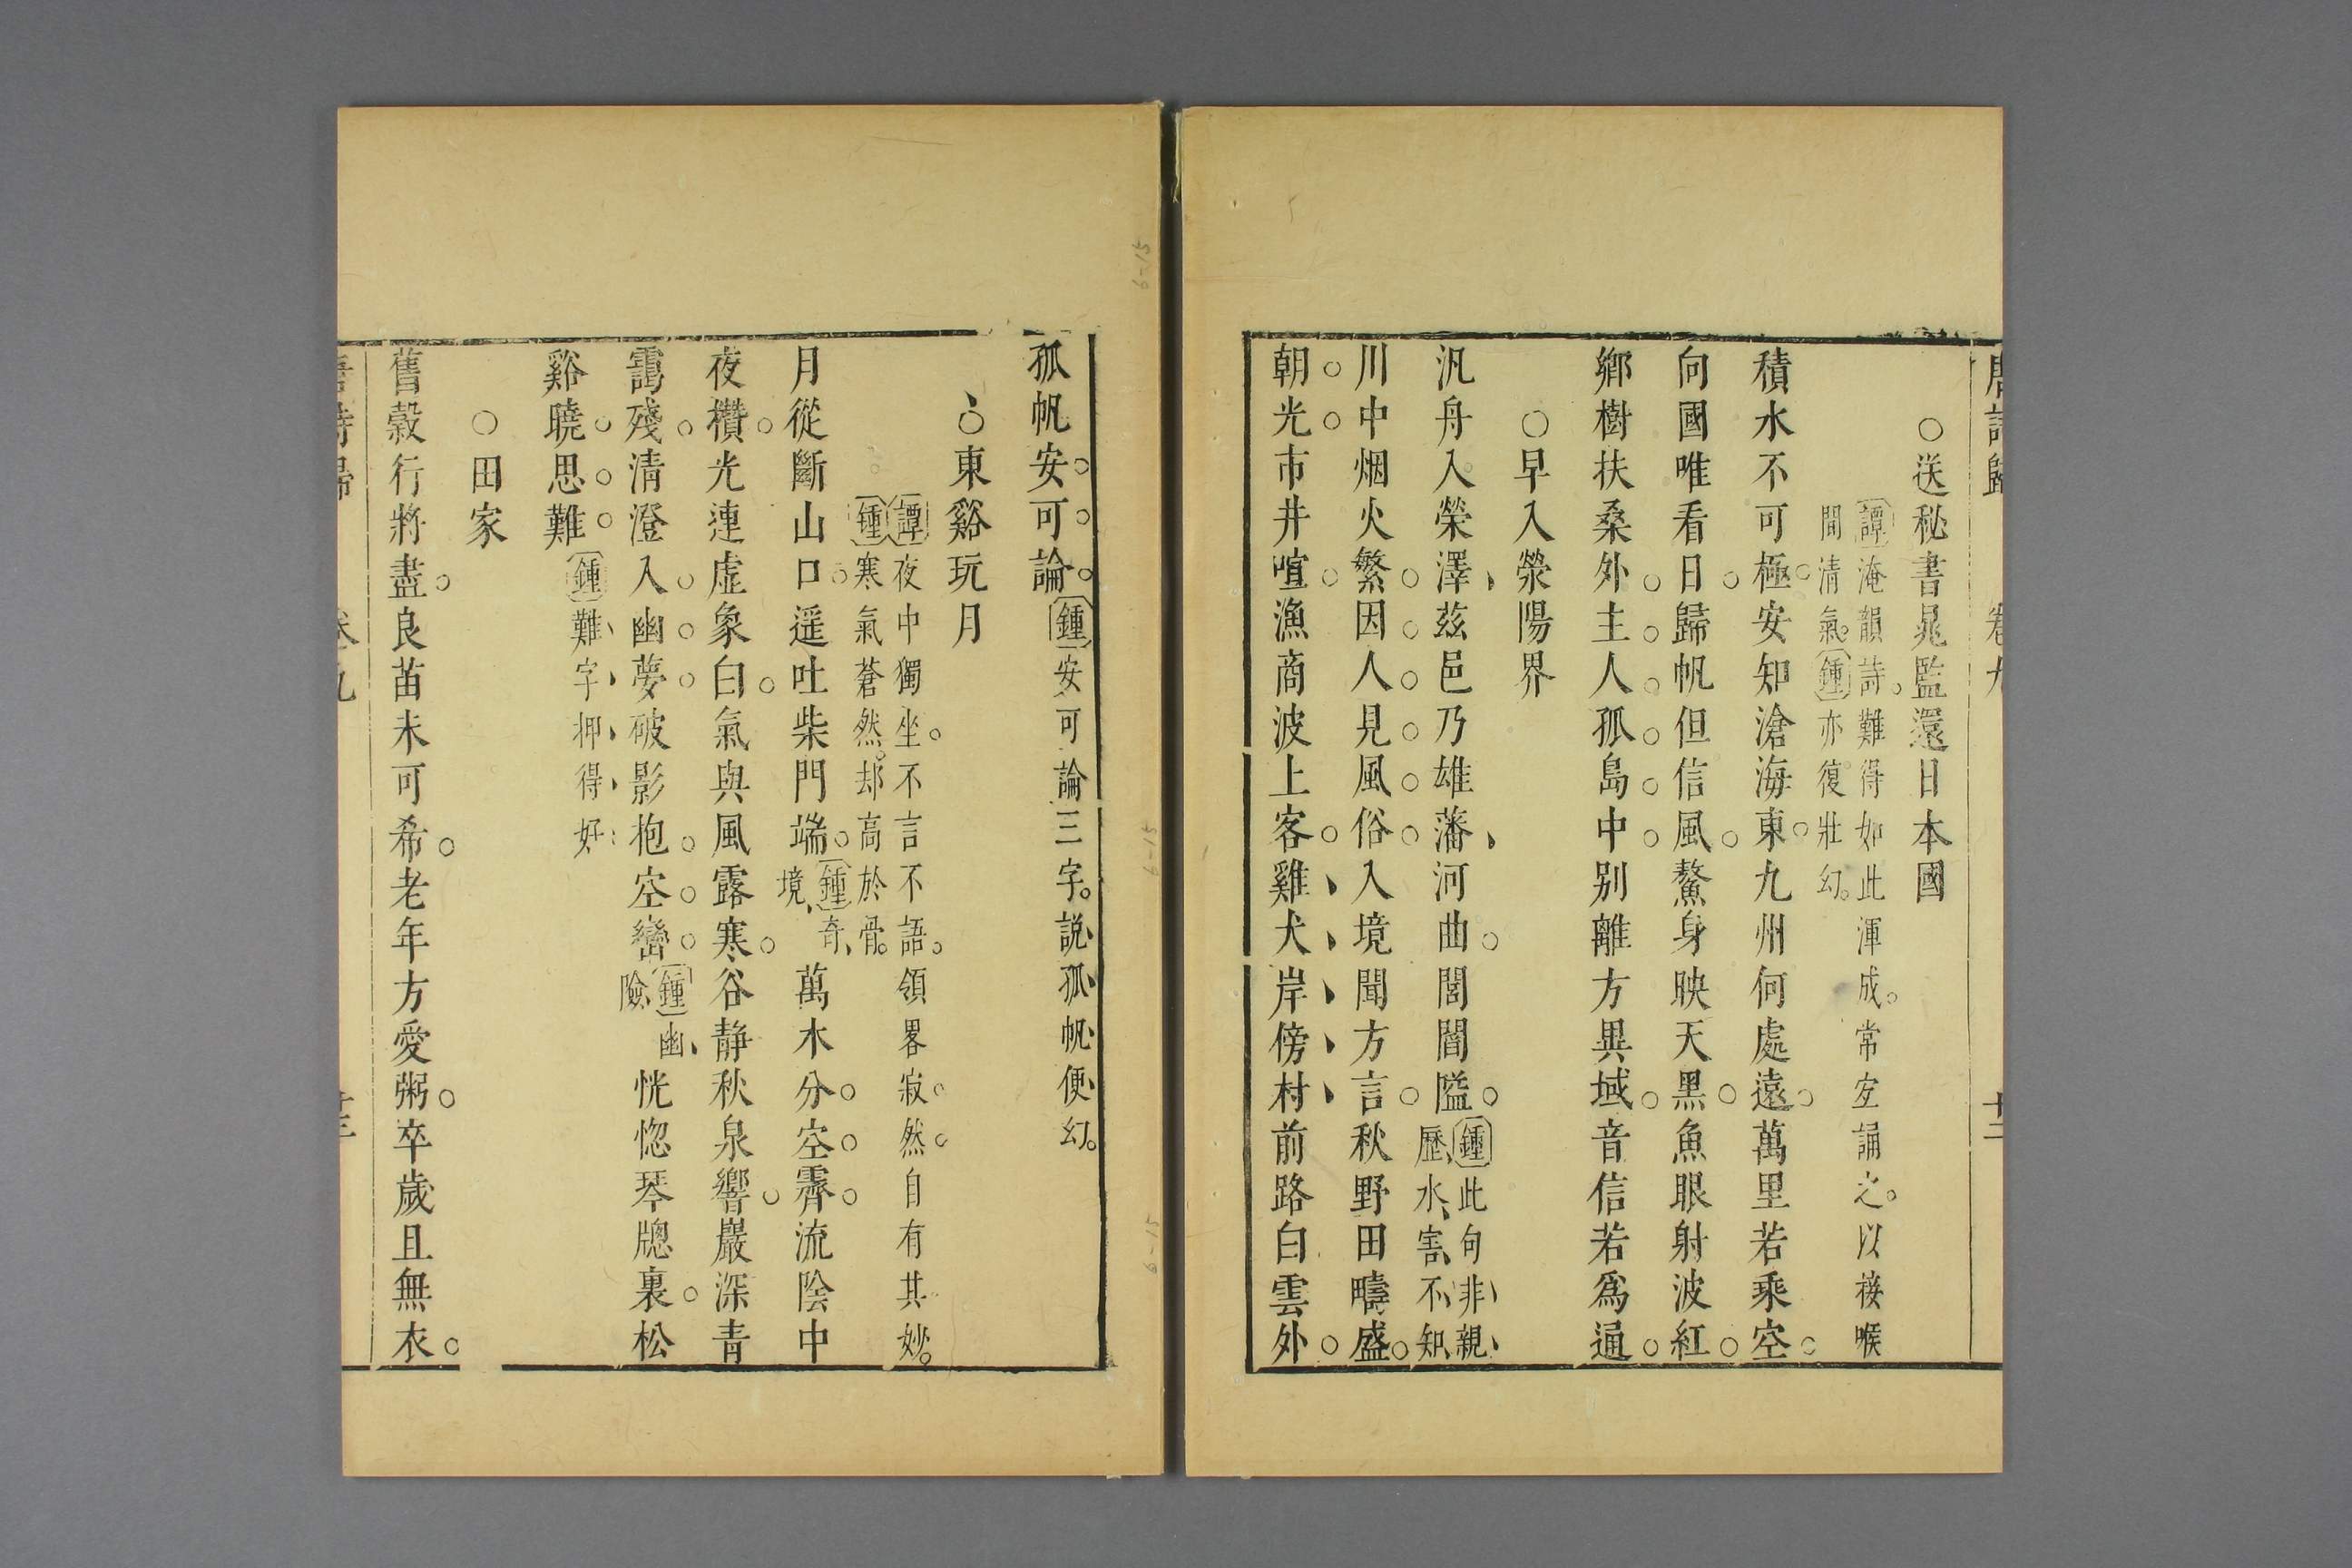 唐詩歸 卷九 十二
○送秘書晁監還日本國
譚淹韻詩難得如此渾成常空誦之以接喉
間清氣鍾亦復壯幻
積水不可極安知滄海東九州何處遠萬里若乘空
向國唯看日歸帆但信風鰲身映天黑魚眼射波紅
鄉樹扶桑外主人孤島中別離方異域音信若爲通
○早入滎陽界
汎舟入榮澤茲邑乃雄藩河曲閭閻隘鍾此句非親歷水害不知
川中烟火繁因人見風俗入境聞方言秋野田疇盛
朝光市井喧漁商波上客雞犬岸傍村前路白雲外
孤帆安可論鍾安可論三字說孤帆便幻
○東谿玩月
譚夜中獨坐不言不語領畧寂然自有其妙
鍾寒氣蒼然却高於骨
月從斷山口遥吐柴門端鍾奇境萬木分空霽流陰中
夜欑光連虛象白氣與風露寒谷静秋泉響巖深青
靄殘清澄入幽夢破影抱空巒鍾幽險恍惚琴牕裏松
谿曉思難鍾難字押得好
○田家
舊穀行將盡良苗未可希老年方愛粥卒歲且無衣
唐詩歸 卷九 十三
6-15
6-15
6-15